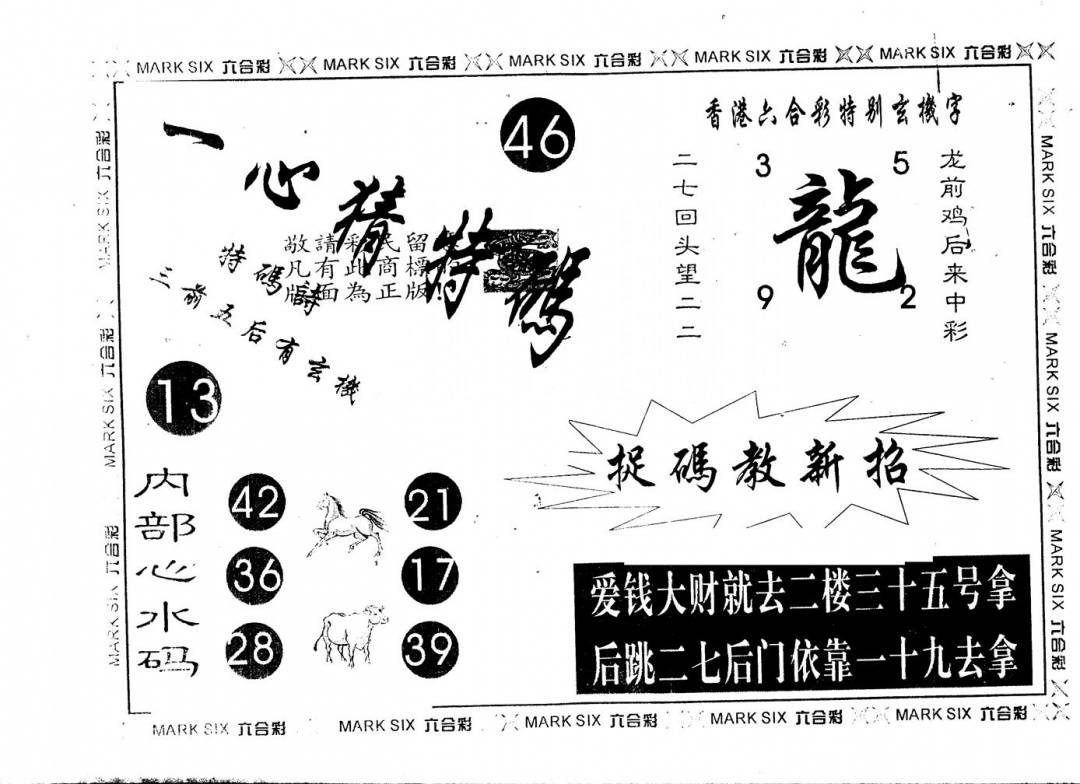 MARK SIX 六合彩 MARK SIX 六合彩 MARK SIX 六合彩 MARK SIX 六合彩 MARK SIX 六合彩
一心猜特碼
46
敬請彩民留
凡有此商標
版面為正版
特碼詩
三前五后有玄機
13
内部心水码
42
36
28
21
17
39
香港六合彩特别玄機字
二七回头望二二
3
5
龍
9
2
龙前鸡后来中彩
捉碼教新招
爱钱大财就去二楼三十五号拿
后跳二七后门依靠一十九去拿
MARK SIX 六合彩 MARK SIX 六合彩 MARK SIX 六合彩
MARK SIX 六合彩 MARK SIX 六合彩 MARK SIX 六合彩
MARK SIX 六合彩 MARK SIX 六合彩 MARK SIX 六合彩 MARK SIX 六合彩 MARK SIX 六合彩